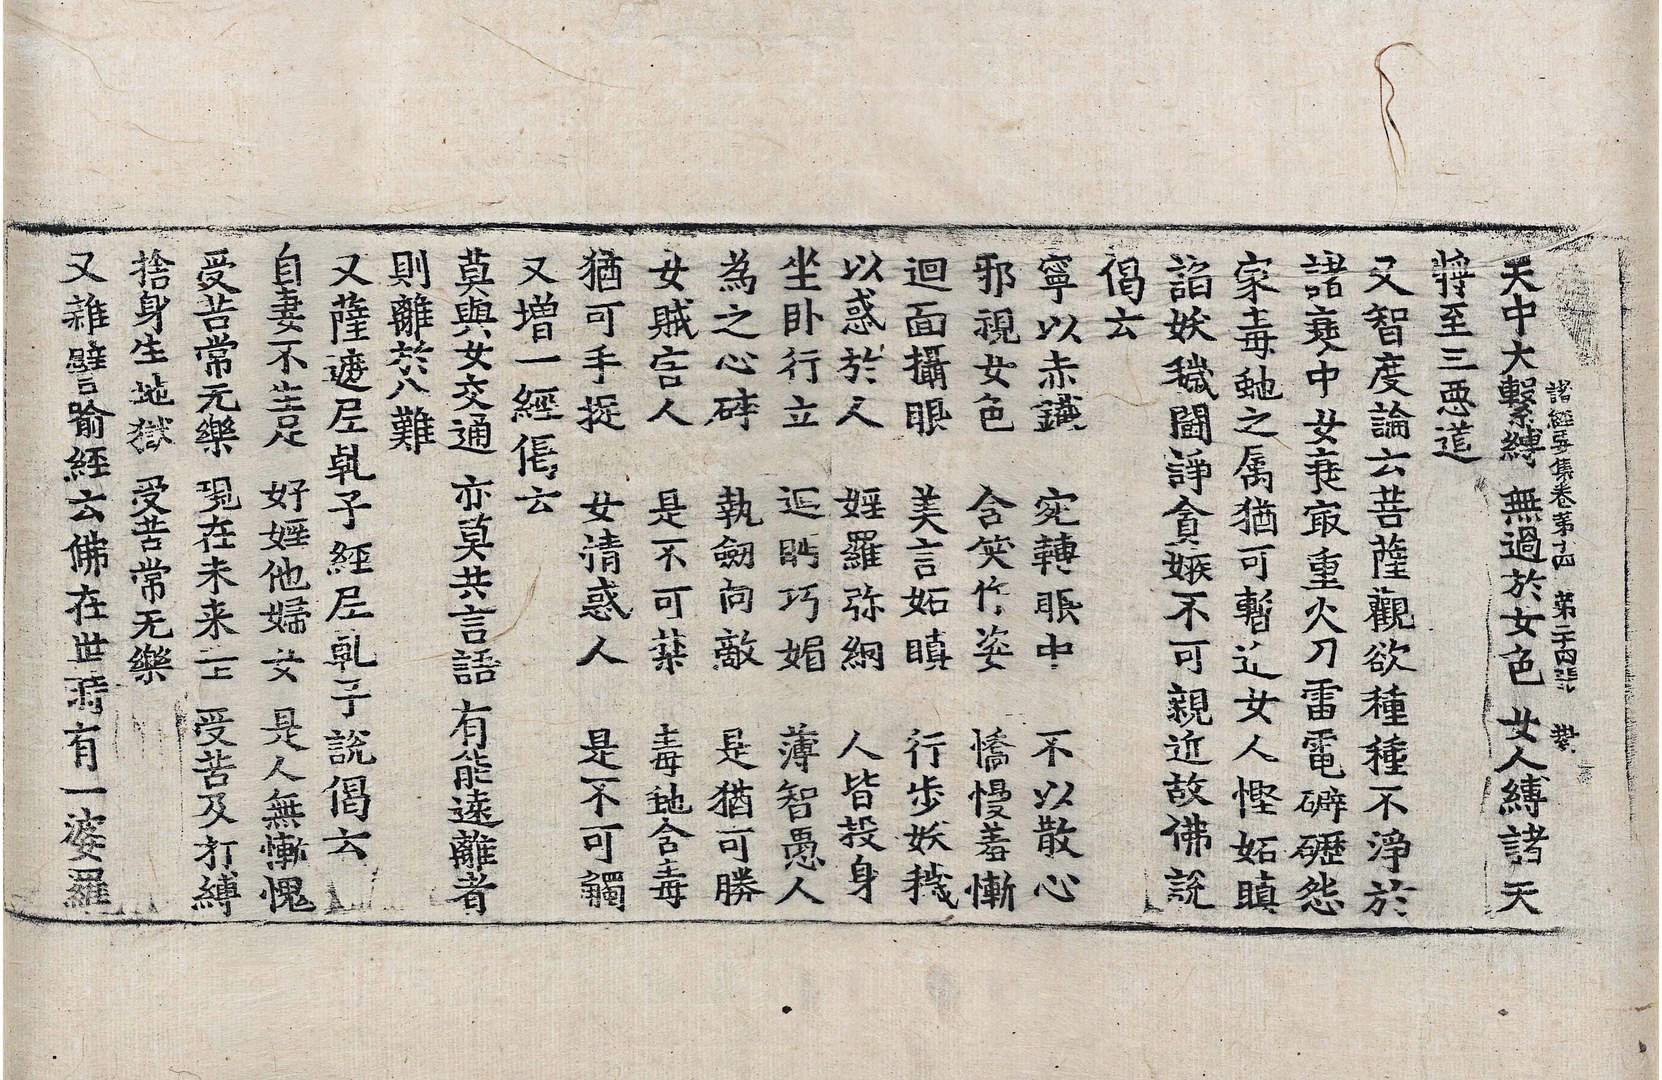 諸經要集卷第十四 第二十四張 對
天中大繫縛 無過於女色 女人縛諸天
將至三惡道
又智度論云菩薩觀欲種種不淨於
諸衰中女衰㝡重火刀雷電礔礰怨
家毒虵之属猶可暫近女人慳妬瞋
諂妖穢鬪諍貪嫉不可親近故佛說
偈云
寧以赤鐵 宛轉眼中 不以散心
邪視女色 含笑作姿 憍慢羞慚
迴面攝眼 美言妬瞋 行步妖穢
以惑於人 婬羅弥網 人皆投身
坐卧行立 迴眄巧媚 薄智愚人
為之心醉 執劒向敵 是猶可勝
女賊害人 是不可禁 毒虵含毒
猶可手捉 女清惑人 是不可觸
又增一經偈云
莫與女交通 亦莫共言語 有能遠離者
則離於八難
又薩遮尼乹子經尼乹子說偈云
自妻不生足 好婬他婦女 是人無慚愧
受苦常无樂 現在未来世 受苦及打縛
捨身生地獄 受苦常无樂
又雜譬喻經云佛在世時有一婆羅